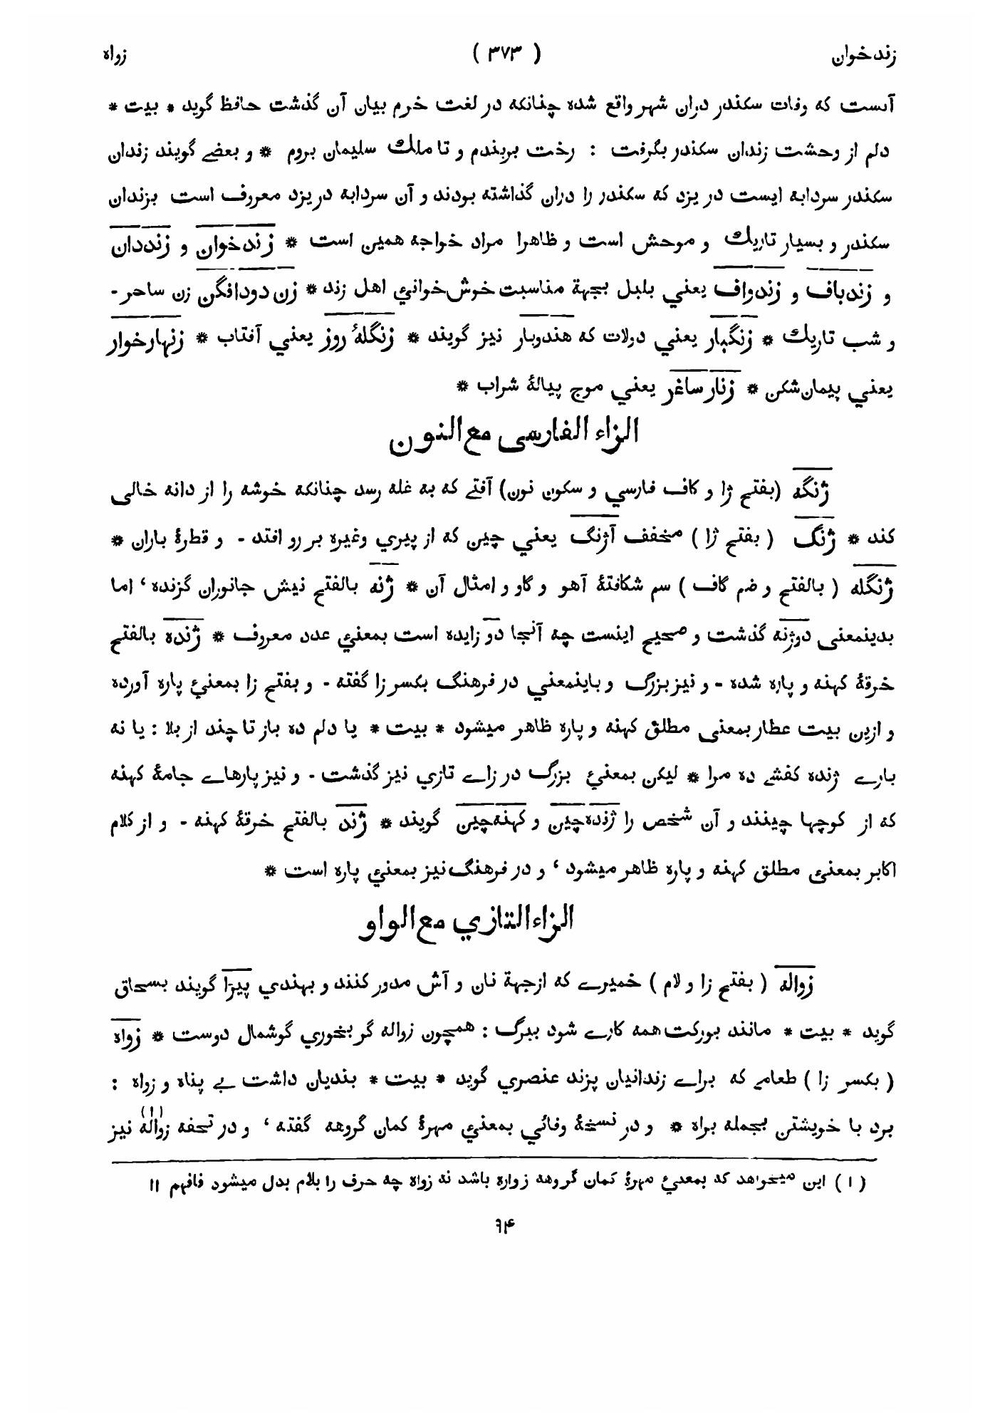 زندخوان ( ۳۷۳ ) زواه
آنست که وفات سکندر دران شهر واقع شده چنانکه در لغت خرم بیان آن گذشت حافظ گوید * بیت *
دلم از وحشت زندان سکندر بگرفت : رخت بربندم و تا ملك سلیمان بروم * و بعضے گویند زندان
سکندر سردابه ایست در یزد که سکندر را دران گذاشته بودند و آن سردابه در یزد معروف است بزندان
سکندر و بسیار تاریك و موحش است و ظاهرا مراد خواجه همین است * زندخوان و زنددان
و زندباف و زندواف یعني بلبل بجهة مناسبت خوش‌خواني اهل زند * زن دودافگن زن ساحر -
و شب تاریك * زنگبار یعني دولات که هندوبار نیز گویند * زنگلۀ روز یعني آفتاب * زنهارخوار
یعني پیمان‌شکن * زنار ساغر یعني موج پیالۀ شراب *
الزاء الفارسی مع النون
ژنگه (بفتح ژا و کاف فارسي و سکون نون) آفتے که به غله رسد چنانکه خوشه را از دانه خالی
کند * ژنگ ( بفتح ژا ) مخفف آژنگ یعني چین که از پیري وغیره بر رو افتد - و قطرۀ باران *
ژنگله ( بالفتح و ضم گاف ) سم شکافتۀ آهو و گاو و امثال آن * ژنه بالفتح نیش جانوران گزنده ٬ اما
بدینمعنی دوژنه گذشت و صحیح اینست چه آنجا دو زایده است بمعني عدد معروف * ژنده بالفتح
خرقۀ کهنه و پاره شده - و نیز بزرگ و باینمعني در فرهنگ بکسر زا گفته - و بفتح زا بمعنیٔ پاره آورده
و ازین بیت عطار بمعنی مطلق کهنه و پاره ظاهر میشود * بیت * یا دلم ده باز تا چند از بلا : یا نه
بارے ژنده کفشے ده مرا * لیکن بمعنیٔ بزرگ در زاے تازي نیز گذشت - و نیز پارهاے جامۀ کهنه
که از کوچها چینند و آن شخص را ژنده‌چین و کهنه‌چین گویند * ژند بالفتح خرقۀ کهنه - و از کلام
اکابر بمعنی مطلق کهنه و پاره ظاهر میشود ٬ و در فرهنگ نیز بمعني پاره است *
الزاء التازي مع الواو
زواله ( بفتح زا و لام ) خمیرے که ازجهة نان و آش مدور کنند و بهندي پیزا گویند بسحاق
گوید * بیت * مانند بورکت همه کارے شود ببرگ : همچون زواله گر بخوري گوشمال دوست * زواه
( بکسر زا ) طعامے که براے زندانیان پزند عنصري گوید * بیت * بندیان داشت بے پناه و زواه :
برد با خویشتن بجمله براه * و در نسخۀ وفائي بمعني مهرۀ کمان گروهه گفته ٬ و در تحفه زواله (۱) نیز
( ۱ ) این میخواهد که بمعنیٔ مهرۀ کمان گروهه زواره باشد نه زواه چه حرف را بلام بدل میشود فافهم ॥
۹۴